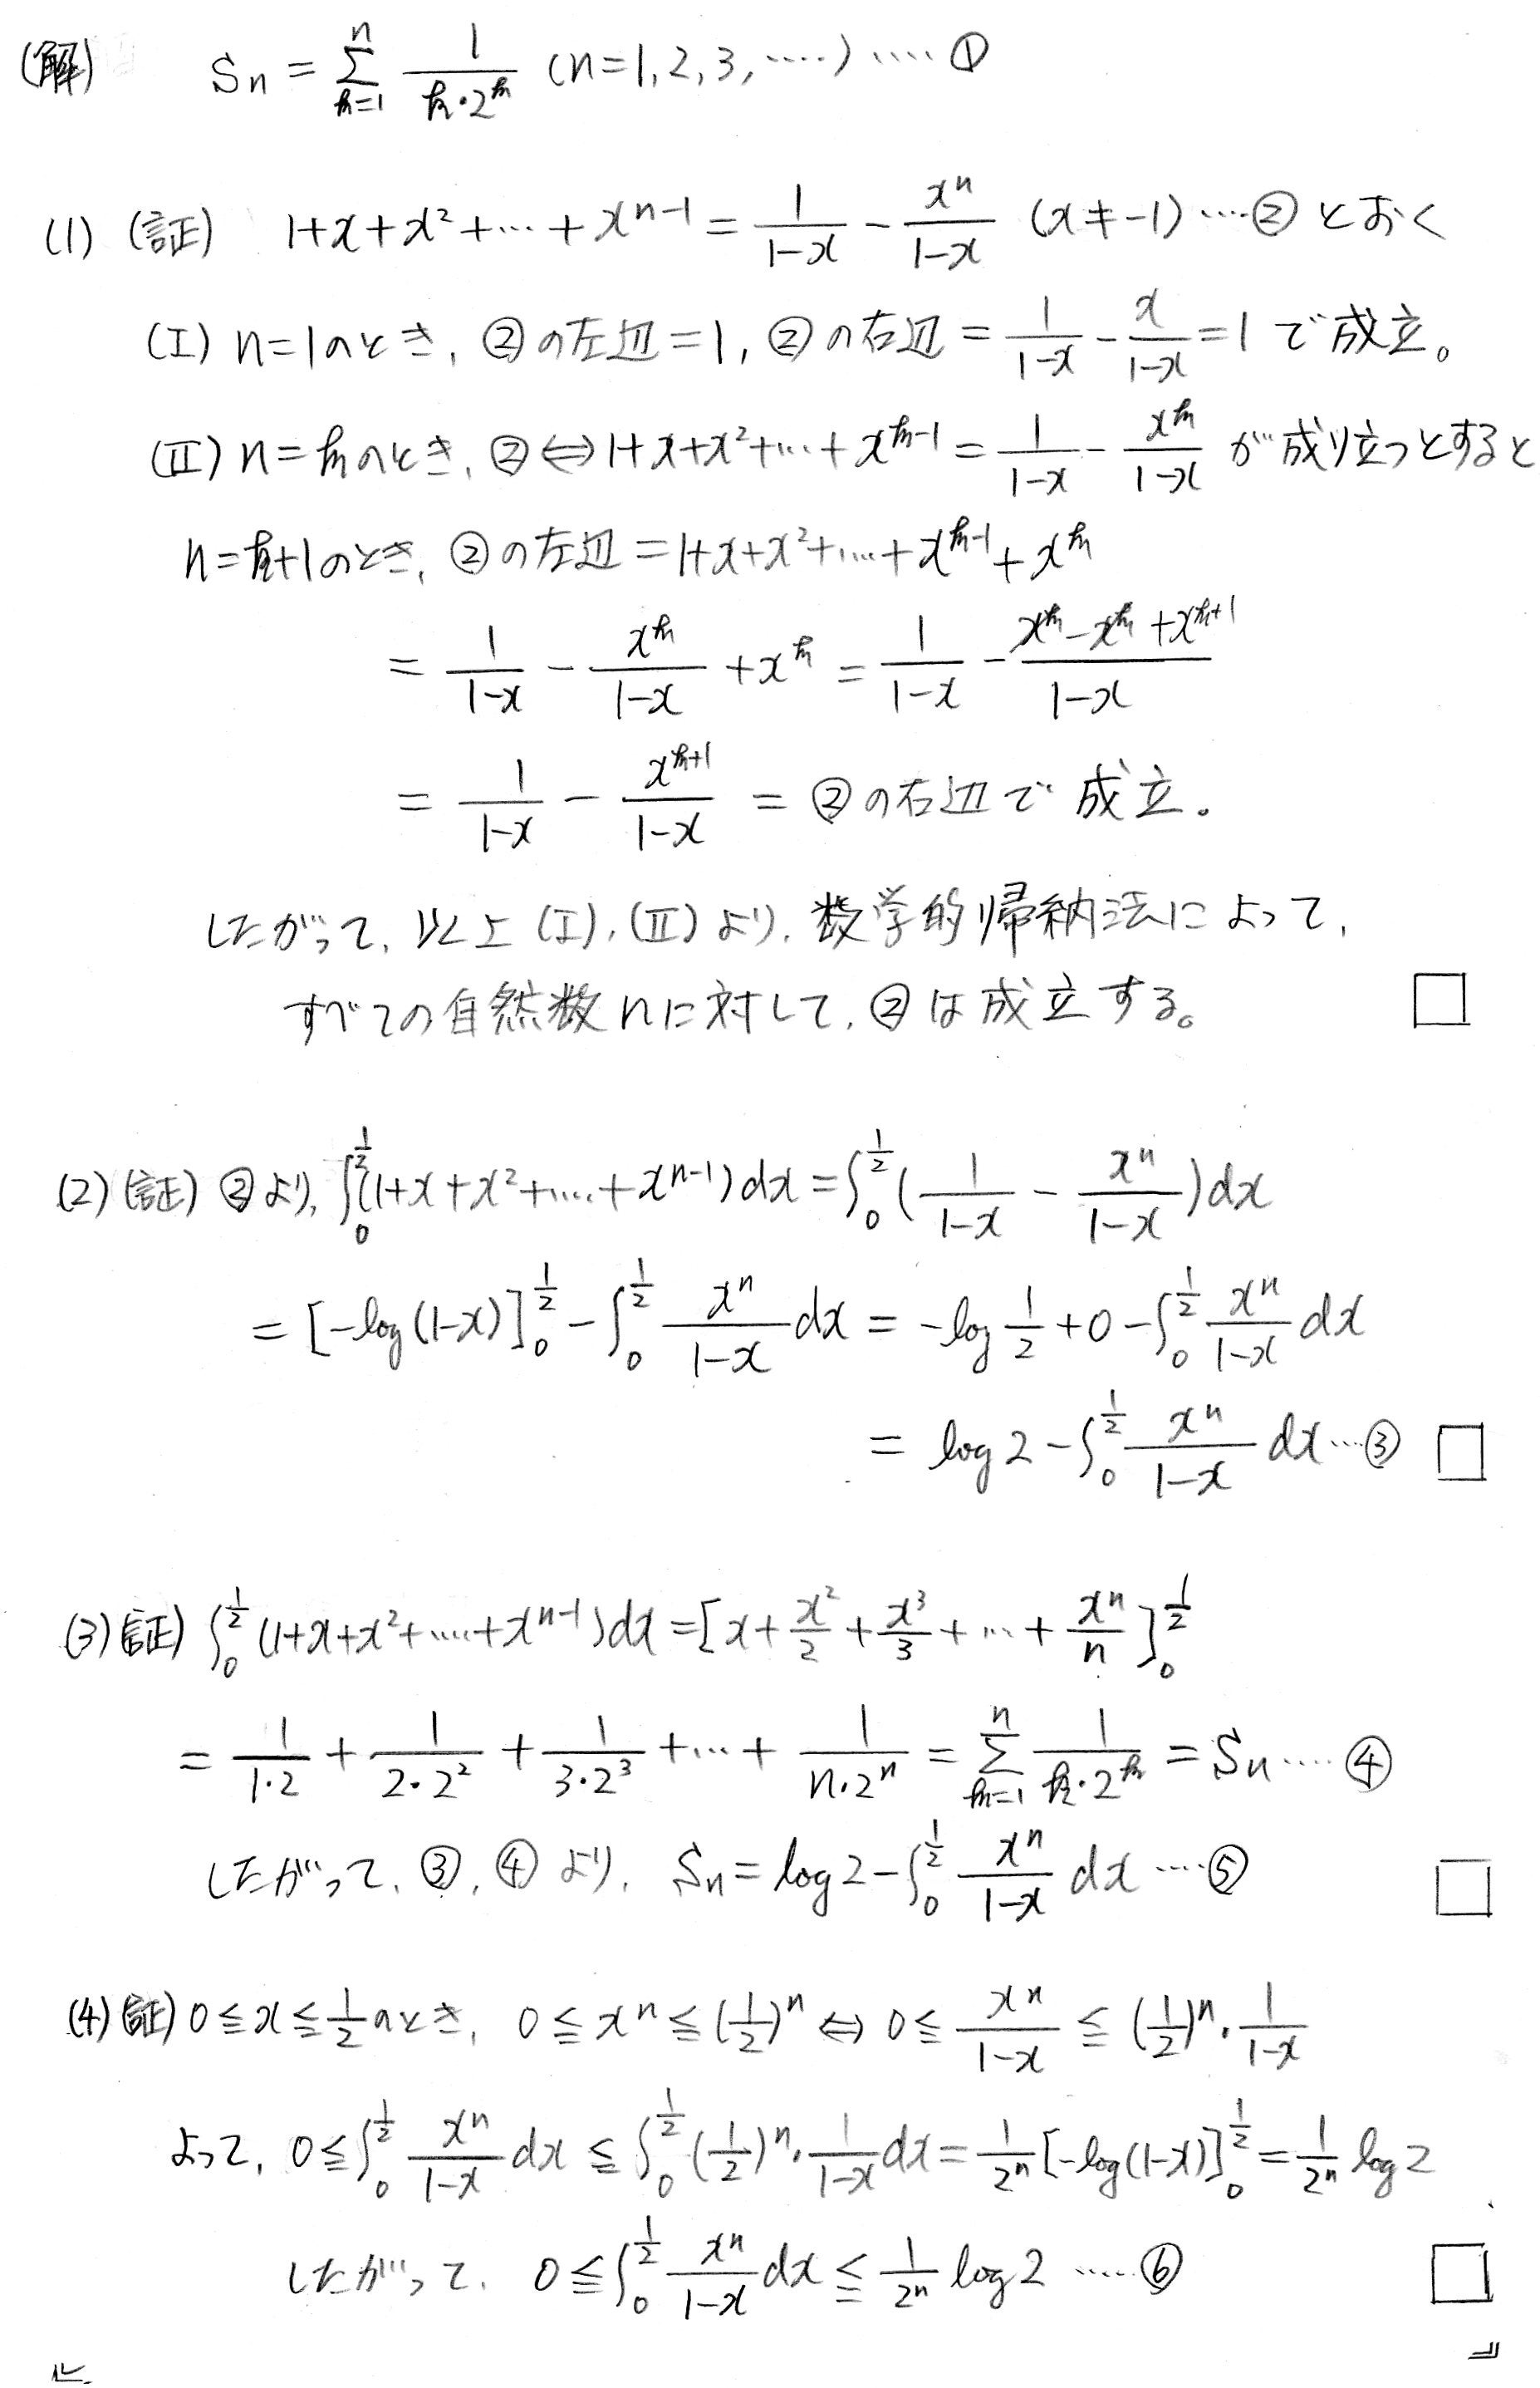 (解) Sn = Σ_{k=1}^{n} 1/(k・2^k) (n=1,2,3,‥‥) ‥‥ ①
(1) (証) 1+x+x²+‥+x^{n-1} = 1/(1-x) - x^n/(1-x) (x≠-1) ‥‥② とおく
(I) n=1のとき, ②の左辺=1, ②の右辺 = 1/(1-x) - x/(1-x) = 1 で成立。
(II) n=kのとき, ②⇔1+x+x²+‥+x^{k-1} = 1/(1-x) - x^k/(1-x) が成り立つとすると
n=k+1のとき, ②の左辺=1+x+x²+‥‥+x^{k-1}+x^k
= 1/(1-x) - x^k/(1-x) + x^k = 1/(1-x) - (x^k-x^k+x^{k+1})/(1-x)
= 1/(1-x) - x^{k+1}/(1-x) = ②の右辺で成立。
したがって, 以上(I),(II)より, 数学的帰納法によって,
すべての自然数nに対して, ②は成立する。 □
(2) (証) ②より, ∫_0^{1/2}(1+x+x²+‥‥+x^{n-1})dx = ∫_0^{1/2}(1/(1-x) - x^n/(1-x))dx
= [-log(1-x)]_0^{1/2} - ∫_0^{1/2} x^n/(1-x) dx = -log 1/2 + 0 - ∫_0^{1/2} x^n/(1-x) dx
= log2 - ∫_0^{1/2} x^n/(1-x) dx ‥‥③ □
(3) (証) ∫_0^{1/2}(1+x+x²+‥‥+x^{n-1})dx = [x + x²/2 + x³/3 + ‥ + x^n/n]_0^{1/2}
= 1/(1・2) + 1/(2・2²) + 1/(3・2³) + ‥ + 1/(n・2^n) = Σ_{k=1}^{n} 1/(k・2^k) = Sn ‥‥ ④
したがって, ③, ④より, Sn = log2 - ∫_0^{1/2} x^n/(1-x) dx ‥‥⑤ □
(4) (証) 0≦x≦1/2のとき, 0≦x^n≦(1/2)^n ⇔ 0≦x^n/(1-x)≦(1/2)^n・1/(1-x)
よって, 0≦∫_0^{1/2} x^n/(1-x) dx ≦ ∫_0^{1/2}(1/2)^n・1/(1-x) dx = 1/2^n [-log(1-x)]_0^{1/2} = 1/2^n log2
したがって, 0≦∫_0^{1/2} x^n/(1-x) dx ≦ 1/2^n log2 ‥‥⑥ □